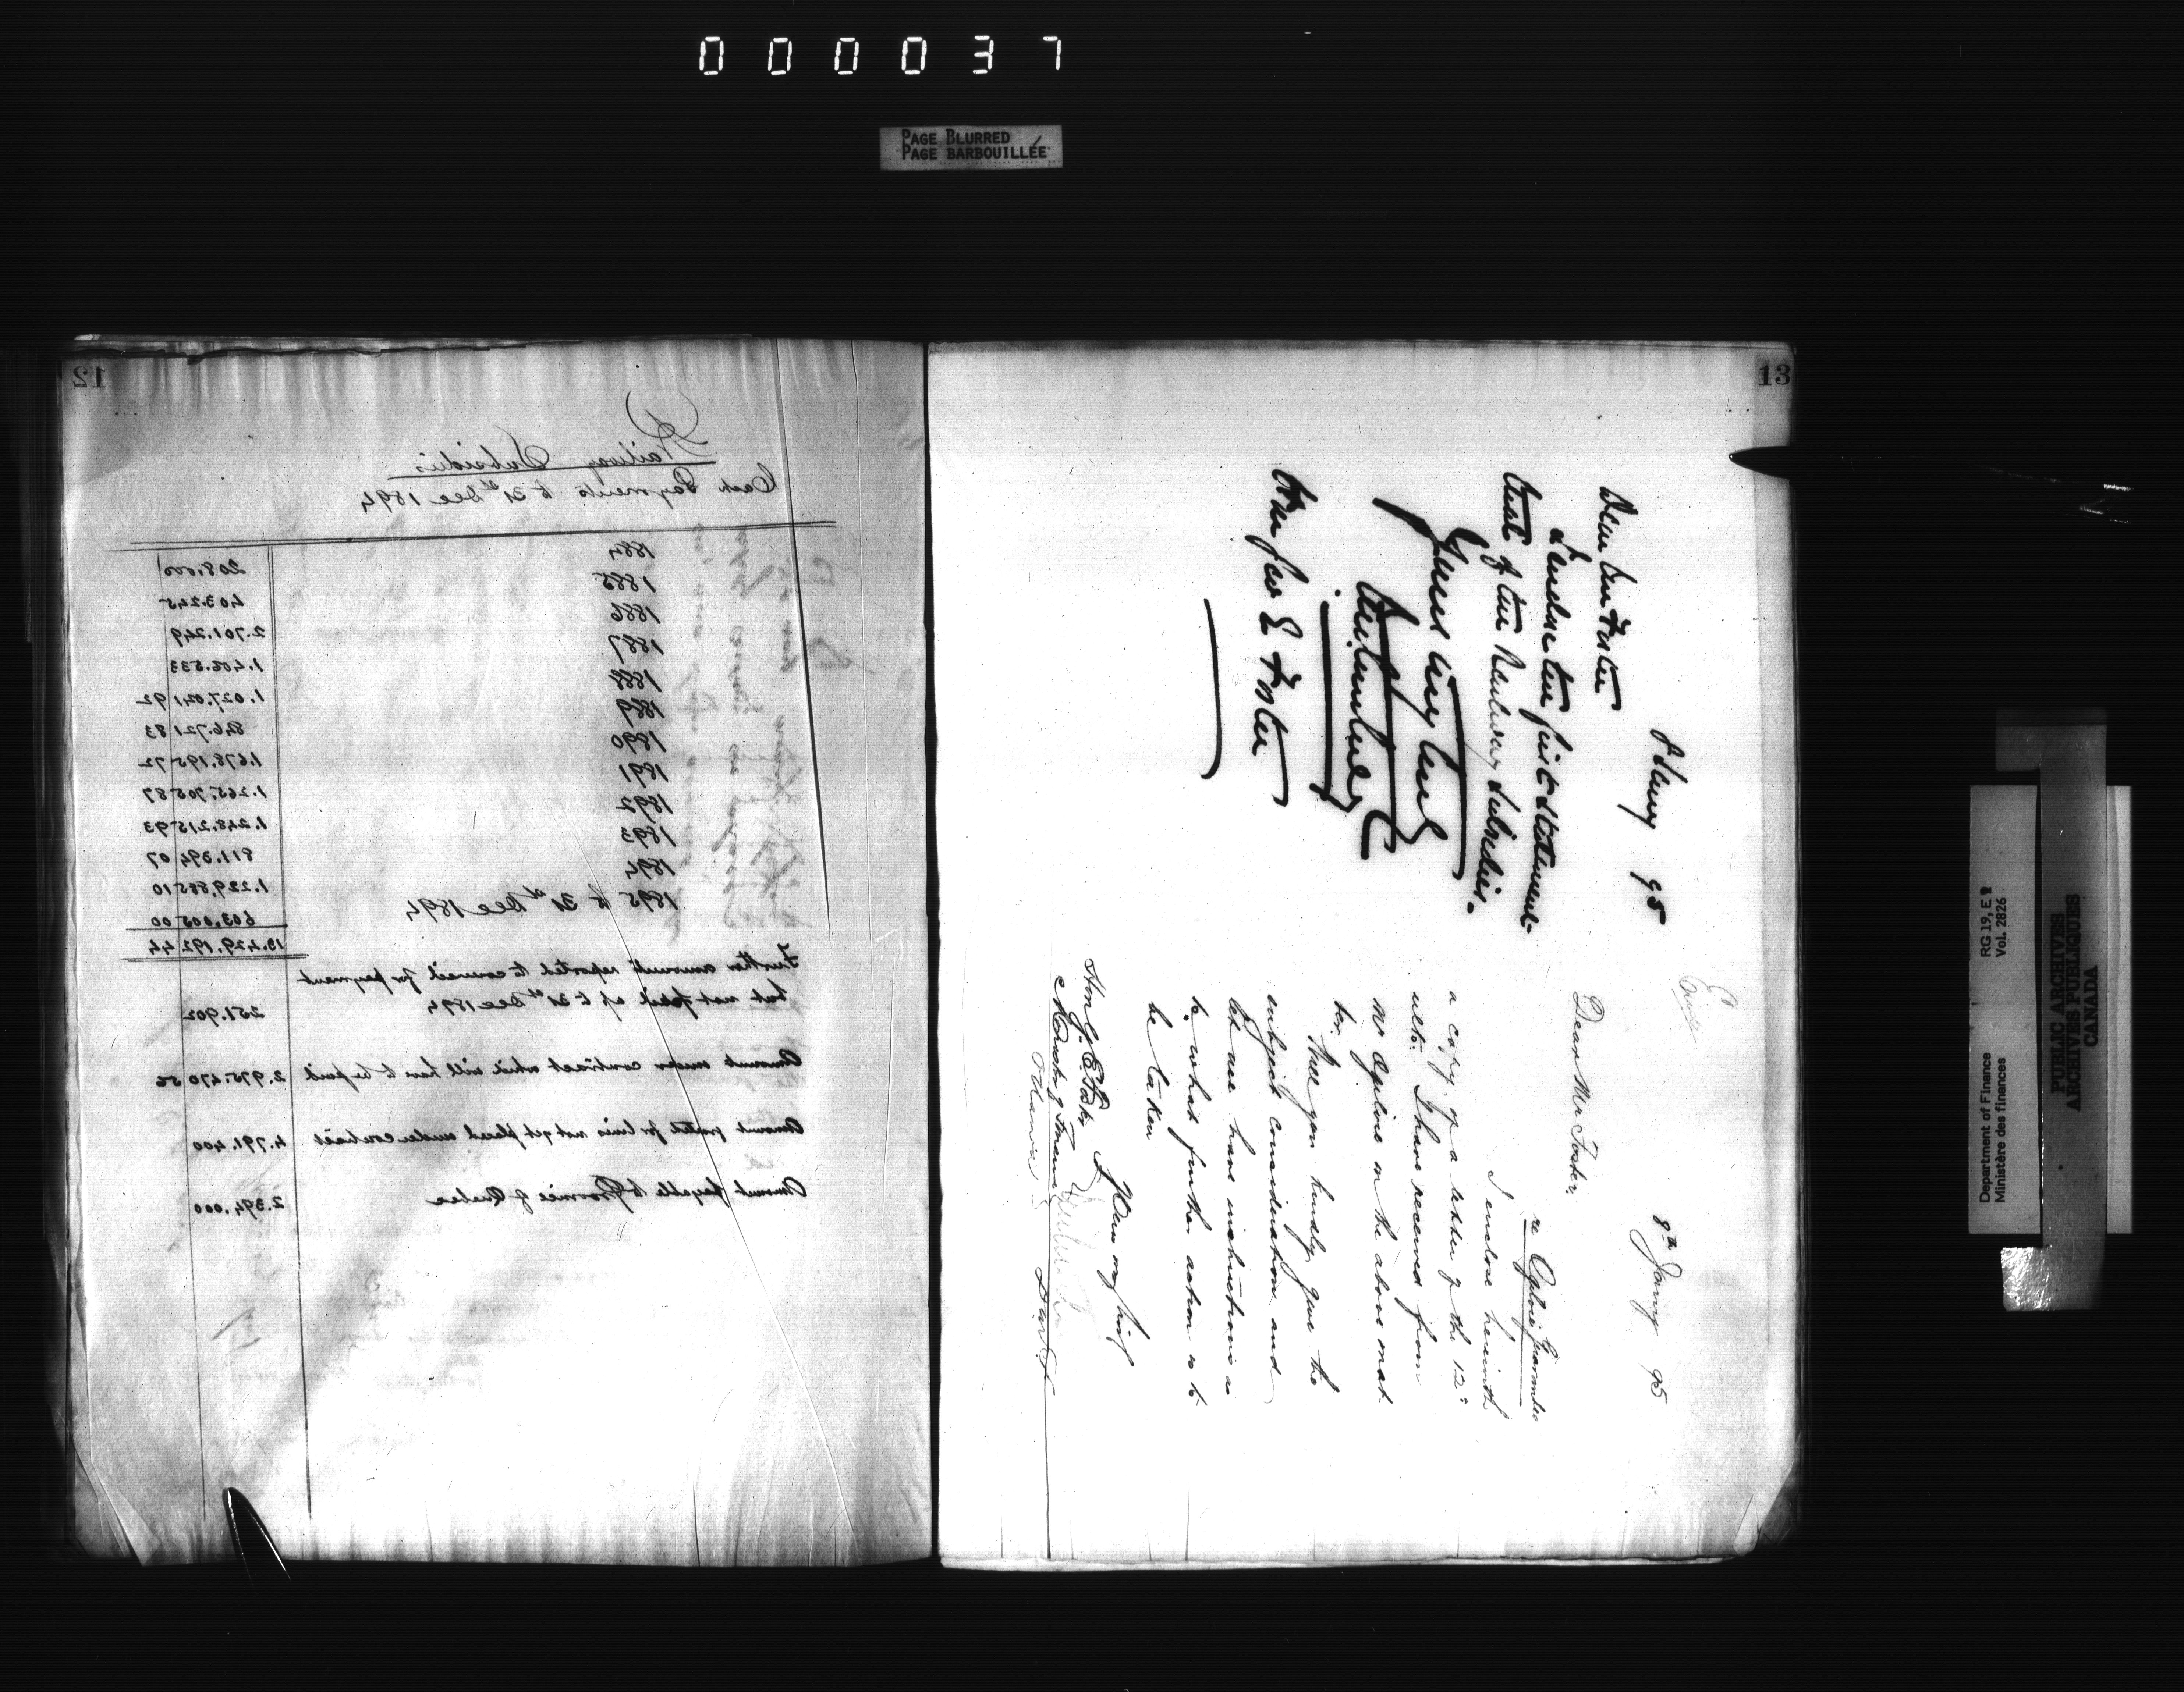 000037
PAGE BLURRED
PAGE BARBOUILLÉE
12
Railway Subsidies
Cash Payments to 31st Dec 1894
1884 208.000
1885 403.245
1886 2.701.249
1887 1.406.533
1888 1.027.041 92
1889 846.721 83
1890 1.678.195 72
1891 1.265.705 87
1892 1.248.215 93
1893 811.394 07
1894 1.229.885 10
1895 to 31st Dec 1894 603.005 00
13.429.192 44
Further amounts reported to council for payment
but not paid up to 31st Dec 1894 251.902
Amount under contract which will have to be paid 2.975.470 56
Amount granted for lines not yet placed under contract 4.791.400
Amount payable to Province of Quebec 2.394.000
13
95
Dear Mr Foster
I enclose
of the Railway Subsidies.
Yours very truly
Hon Geo E Foster
8th Jany 95
Dear Mr Foster,
re Ogilvie Guarantee
I enclose herewith
a copy of a letter of the 12th
ulto. I have received from
Mr Ogilvie in the above mat
ter. Will you kindly give the
subject consideration and
let me have instructions as
to what further action is to
be taken
Hon G. E. Foster
Minister of Finance
Ottawa
Department of Finance RG 19, E 2
Ministère des finances Vol. 2826
PUBLIC ARCHIVES
ARCHIVES PUBLIQUES
CANADA